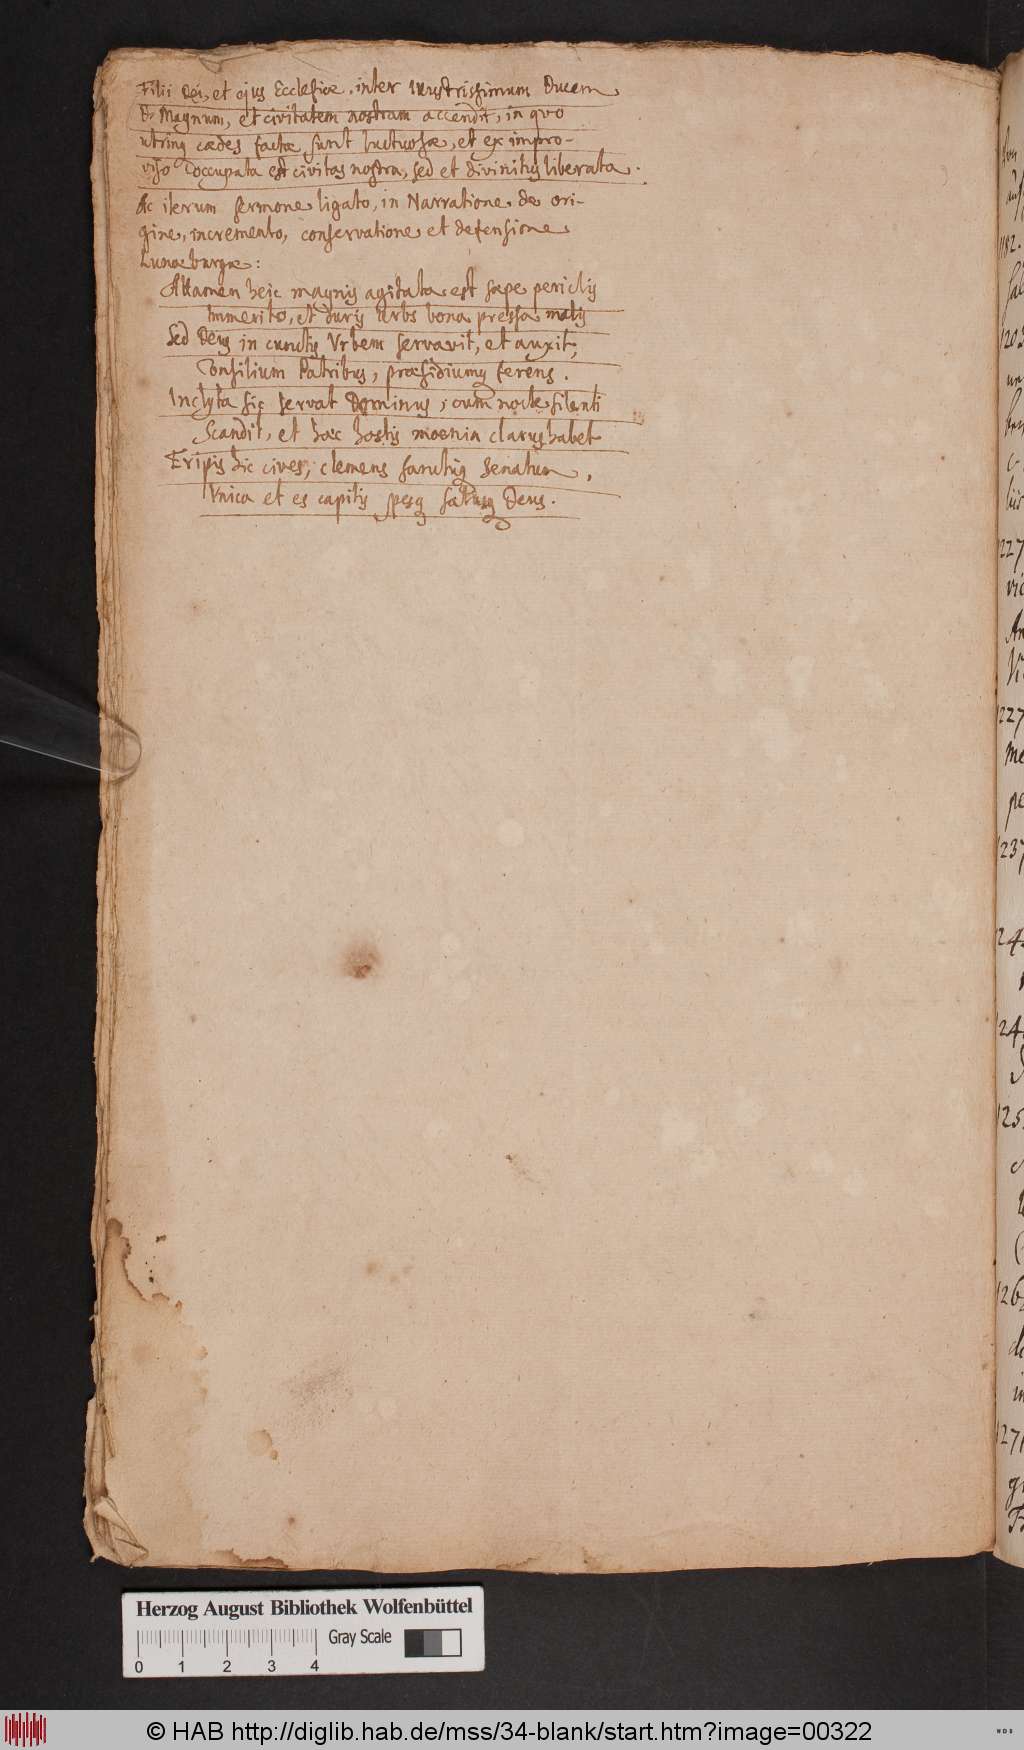 Filii Dei, et ejus Ecclesiæ, inter Illustrissimum Ducem
D. Magnum, et civitatem nostram accendit, in quo
utrinq cædes factæ sunt luctuosæ, et ex impro-
viso occupata est civitas nostra, sed et divinitus liberata.
Ac iterum sermone ligato, in Narratione de ori-
gine, incremento, conservatione et defensione
Lunæburgæ:
Attamen heic magnis agitata est sæpe periclis
Immerito, et duris Urbs bona pressa malis
Sed Deus in cunctis Urbem servavit, et auxit,
Consilium Patribus, præsidiumq ferens.
Inclyta sic servat Dominus, cum nocte silenti
Scandit, et hæc hostis moenia clarus habet
Eripis hic cives, clemens sanctiq Senatum,
Unica et es capitis spesq salusq Deus.
Herzog August Bibliothek Wolfenbüttel
Gray Scale
0 1 2 3 4
© HAB http://diglib.hab.de/mss/34-blank/start.htm?image=00322